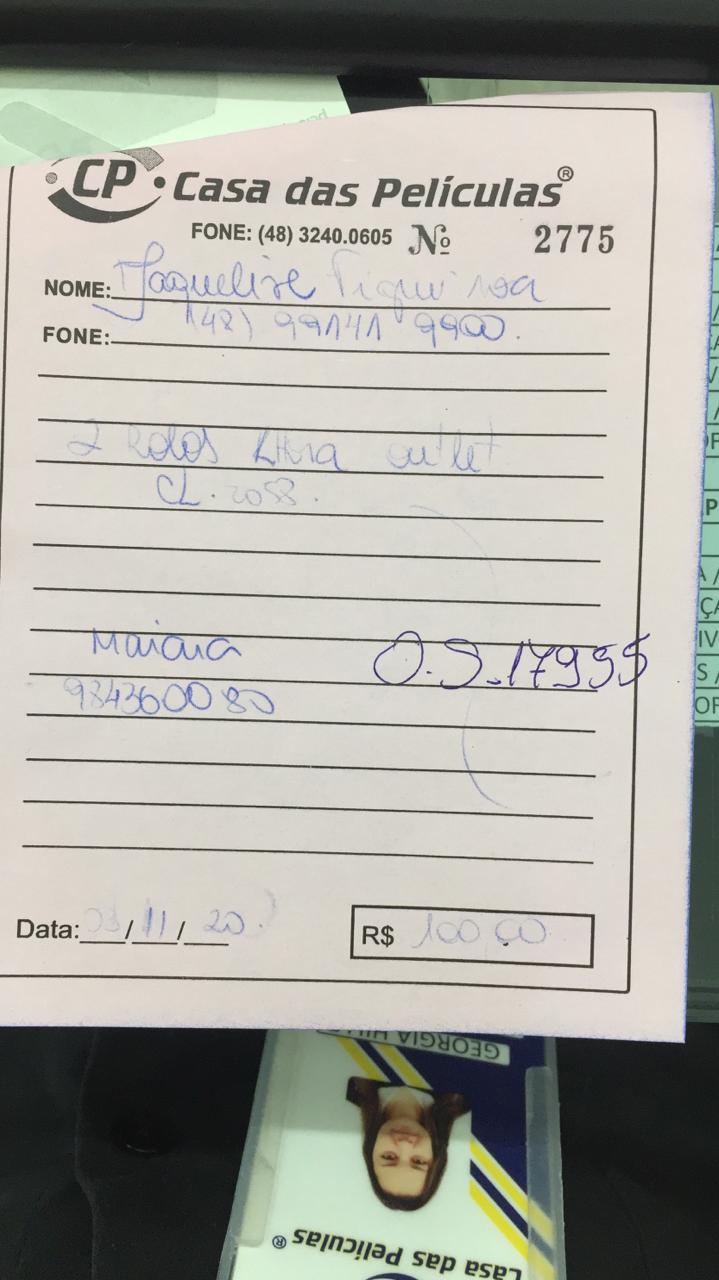 CP Casa das Películas®
FONE: (48) 3240.0605 Nº 2775
NOME: Jaqueline
FONE: (48) 99141 9900.
2 Rolos outlet
CL. 2058.
Maiara O.S. 17955
984360080
Data: 03/11/20
R$ 100 00
GEORGIA
Casa das Películas®